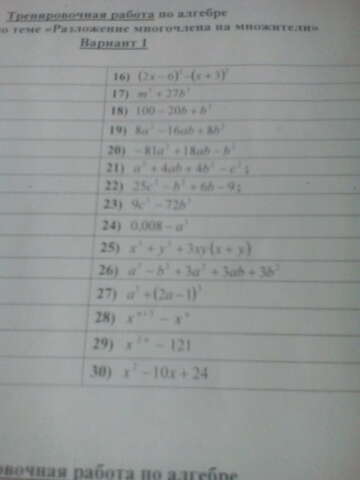 Тренировочная работа по алгебре
по теме «Разложение многочлена на множители»
Вариант 1
16) (2x – 6)² – (x + 3)²
17) m³ + 27b³
18) 100 – 20b + b²
19) 8a² – 16ab + 8b²
20) – 81a² + 18ab – b²
21) a² + 4ab + 4b² – c² ;
22) 25c² – b² + 6b – 9 ;
23) 9c³ – 72b³
24) 0,008 – a³
25) x³ + y³ + 3xy(x + y)
26) a³ – b³ + 3a² + 3ab + 3b²
27) a³ + (2a – 1)³
28) – xⁿ
29) x²ⁿ – 121
30) x² – 10x + 24
овочная работа по алгебре